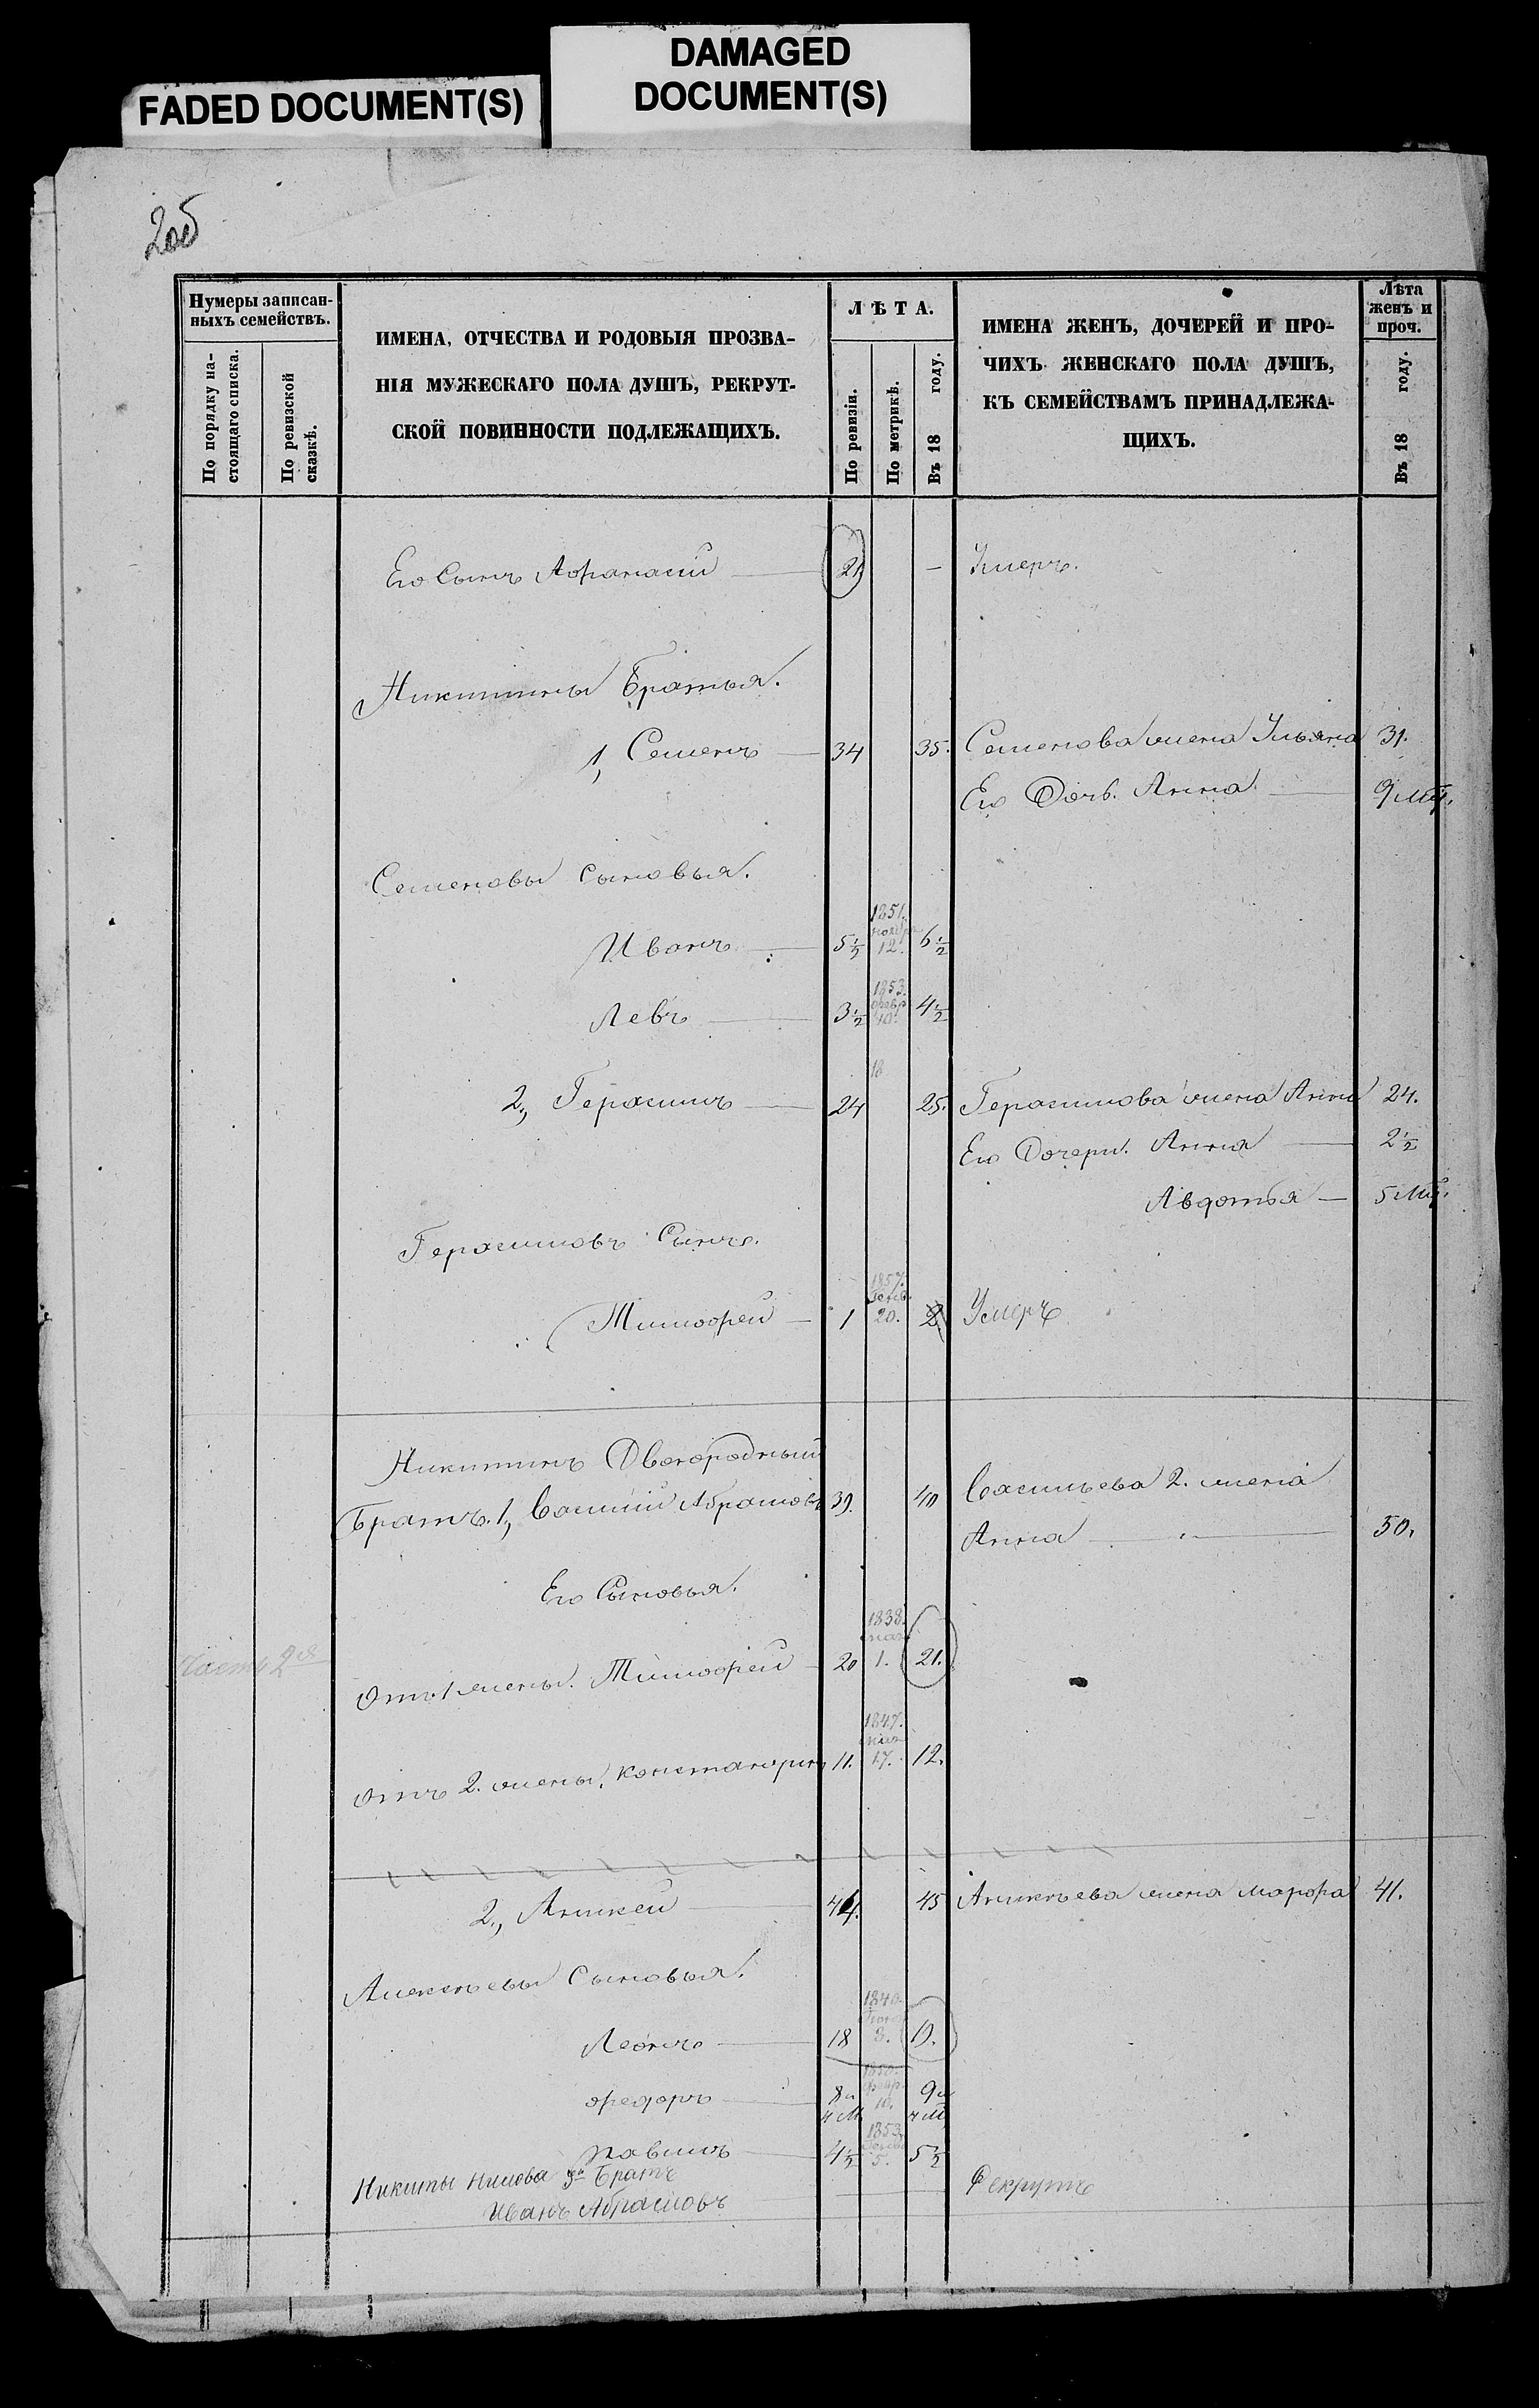 FADED DOCUMENT(S)
DAMAGED
DOCUMENT(S)
Нумеры записан-
ныхъ семействъ.
По порядку на-
стоящаго списка.
По ревизской
сказкѣ.
ИМЕНА, ОТЧЕСТВА И РОДОВЫЯ ПРОЗВА-
НІЯ МУЖЕСКАГО ПОЛА ДУШЪ, РЕКРУТ-
СКОЙ ПОВИННОСТИ ПОДЛЕЖАЩИХЪ.
ЛѢТА.
По ревизіи.
По метрикѣ.
Въ 18 году.
ИМЕНА ЖЕНЪ, ДОЧЕРЕЙ И ПРО-
ЧИХЪ ЖЕНСКАГО ПОЛА ДУШЪ,
КЪ СЕМЕЙСТВАМЪ ПРИНАДЛЕЖА-
ЩИХЪ.
Лѣта
женъ и
проч.
Въ 18 году.
Его Сынъ Афанасий — 21 — Умеръ.
Никитины Братья.
1, Семенъ — 34 35. Семенова жена Ульяна 31.
Его Дочь. Анна — 9 мц.
Семеновы Сыновья.
Иванъ — 5½ 1851. ноября 12. 6½
Левъ — 3½ 1853. февр 10. 4½
18
2, Герасимъ — 24 25. Герасимова жена Анна 24.
Его Дочери. Анна — 2½
Авдотья — 5 мц.
Герасимовъ Сынъ.
Тимофей — 1 1857. 20. 2 Умеръ
Никитинъ Двоюродный
Братъ. 1, Василий Абрамовъ 39. 40 Васильева 2. жена
Анна — 30.
Его Сыновья.
Часть 2я
Отъ 1 жены. Тимофей — 20 1838. 1. 21.
Отъ 2. жены. Константинъ 11. 1847. 17. 12.
2, Аникей — 44. 45 Аникѣева жена Марфа 41.
Аникѣевы Сыновья.
Леонъ — 18 1840. 8. 19.
Федоръ — 8 и 4 м 1850. февр. 10. 9 и 4 м
Павелъ — 4½ 1853. 5. 5½
Никиты Братъ
Иванъ Абрамовъ — Рекрутъ